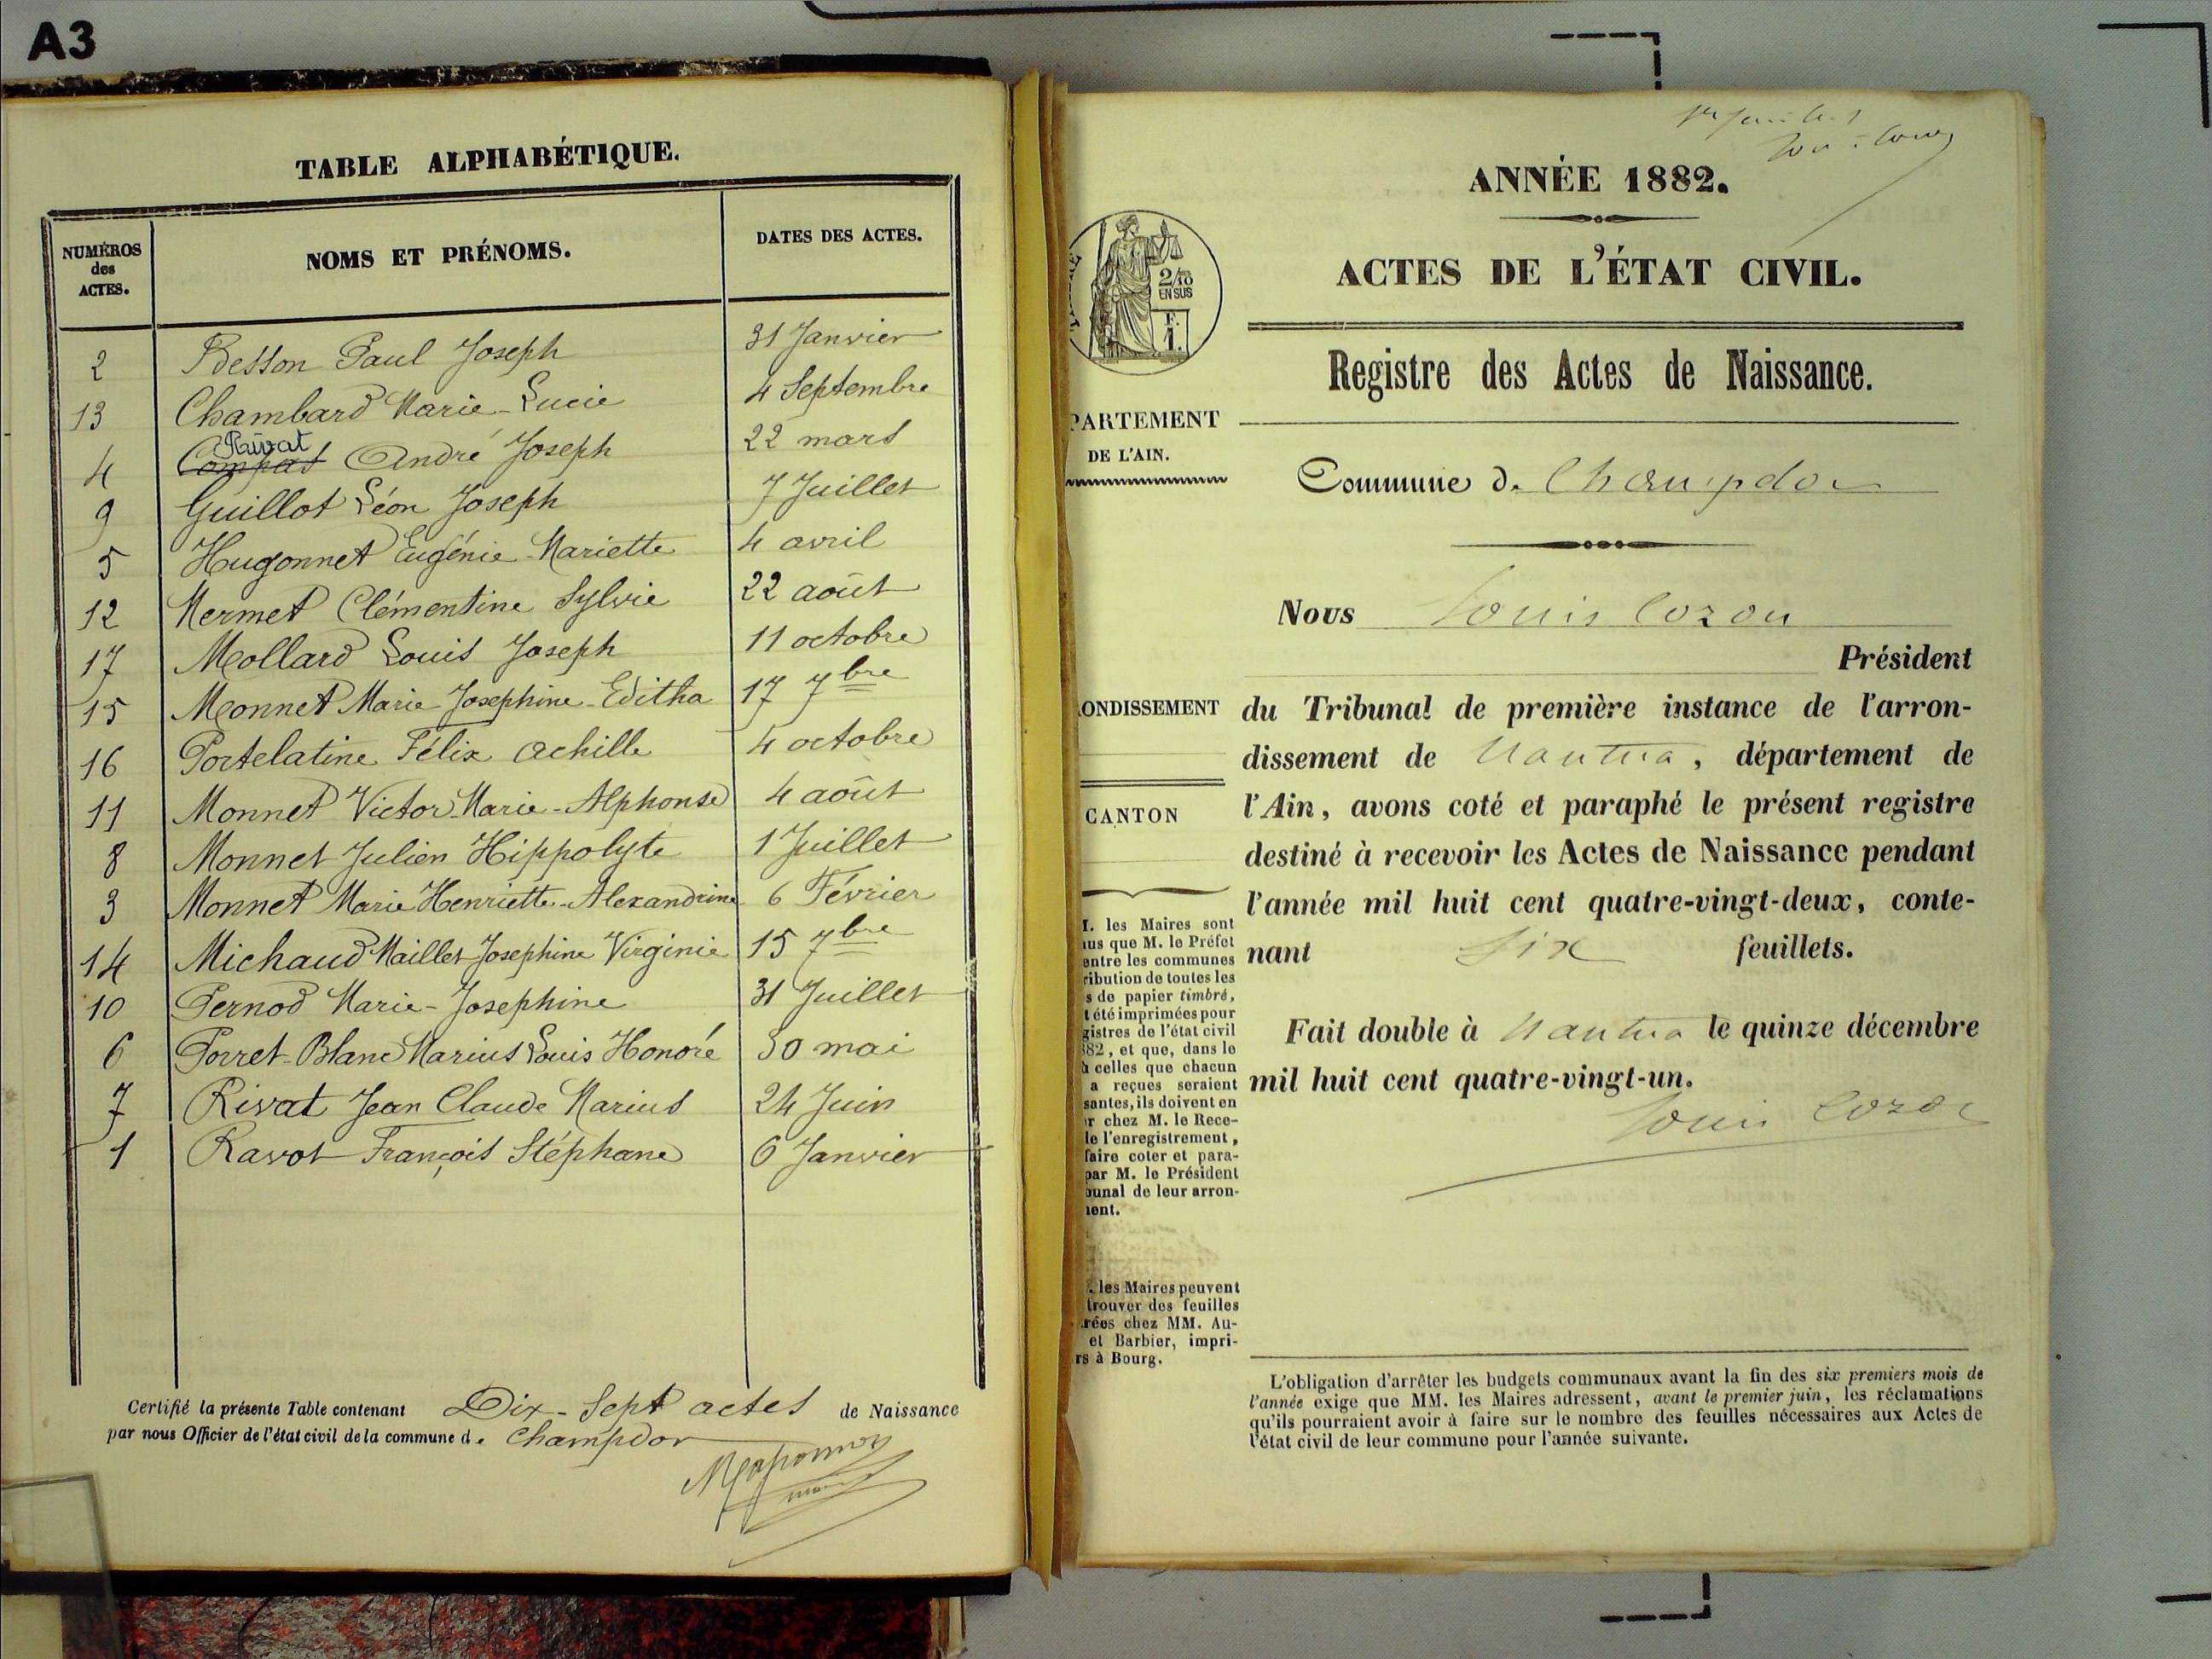 A3
TABLE ALPHABÉTIQUE.
NUMÉROS des ACTES. NOMS ET PRÉNOMS. DATES DES ACTES.
2 Besson Paul Joseph 31 Janvier
13 Chambard Marie-Lucie 4 Septembre
Rivat
4 Compat André Joseph 22 mars
9 Guillot Léon Joseph 7 Juillet
5 Hugonnet Eugénie Mariette 4 avril
12 Mermet Clémentine Sylvie 22 août
17 Mollard Louis Joseph 11 octobre
15 Monnet Marie Josephine-Editha 17 7bre
16 Portelatine Félix Achille 4 octobre
11 Monnet Victor-Marie-Alphonse 4 août
8 Monnet Julien Hippolyte 1 Juillet
3 Monnet Marie Henriette-Alexandrine 6 Février
14 Michaud Maillet Josephine Virginie 15 7bre
10 Pernod Marie-Josephine 31 Juillet
6 Porret-Blanc Marius Louis Honoré 30 mai
7 Rivat Jean Claude Marius 24 Juin
1 Ravot François Stéphane 6 Janvier
Certifié la présente Table contenant Dix-Sept actes de Naissance
par nous Officier de l'état civil de la commune d. Champdor
ANNÉE 1882.
ACTES DE L'ÉTAT CIVIL.
2/10
EN SUS
F.
1.
Registre des Actes de Naissance.
PARTEMENT
DE L'AIN.
Commune d. Champdor
Nous Louis Cozon
Président
ONDISSEMENT
du Tribunal de première instance de l'arron-
dissement de Nantua, département de
l'Ain, avons coté et paraphé le présent registre
destiné à recevoir les Actes de Naissance pendant
l'année mil huit cent quatre-vingt-deux, conte-
nant Six feuillets.
Fait double à Nantua le quinze décembre
mil huit cent quatre-vingt-un.
Louis Cozon
CANTON
. les Maires sont
us que M. le Préfet
entre les communes
ribution de toutes les
s de papier timbré,
t été imprimées pour
gistres de l'état civil
82, et que, dans le
à celles que chacun
a reçues seraient
santes, ils doivent en
r chez M. le Rece-
de l'enregistrement,
faire coter et para-
par M. le Président
bunal de leur arron-
ment.
. les Maires peuvent
trouver des feuilles
rées chez MM. Au-
et Barbier, impri-
rs à Bourg.
L'obligation d'arrêter les budgets communaux avant la fin des six premiers mois de
l'année exige que MM. les Maires adressent, avant le premier juin, les réclamations
qu'ils pourraient avoir à faire sur le nombre des feuilles nécessaires aux Actes de
l'état civil de leur commune pour l'année suivante.